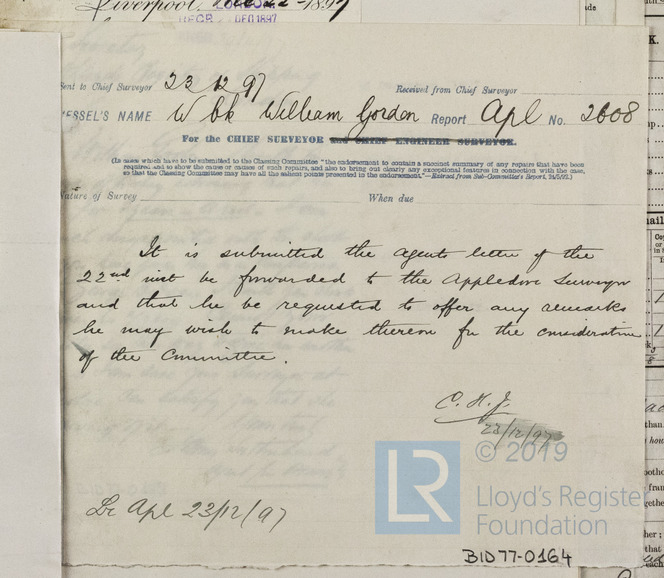 Liverpool,
DEC 1897
Sent to Chief Surveyor 23 12 97 Received from Chief Surveyor
VESSEL'S NAME W bk William Gordon Report Apl No. 2608
For the CHIEF SURVEYOR and CHIEF ENGINEER SURVEYOR.
(In cases which have to be submitted to the Classing Committee "the endorsement to contain a succinct summary of any repairs that have been
required and to show the cause or causes of such repairs, and also to bring out clearly any exceptional features in connection with the case,
so that the Classing Committee may have all the salient points presented in the endorsement."—Extract from Sub-Committee's Report,
Nature of Survey When due
It is submitted the agents letter of the
22nd inst be forwarded to the Appledore Surveyor
and that he be requested to offer any remarks
he may wish to make thereon for the consideration
of the Committee.
C. H. J.
23/12/97
Lr Apl 23/12/97
© 2019
LR
Lloyd's Register
Foundation
BID77-0164